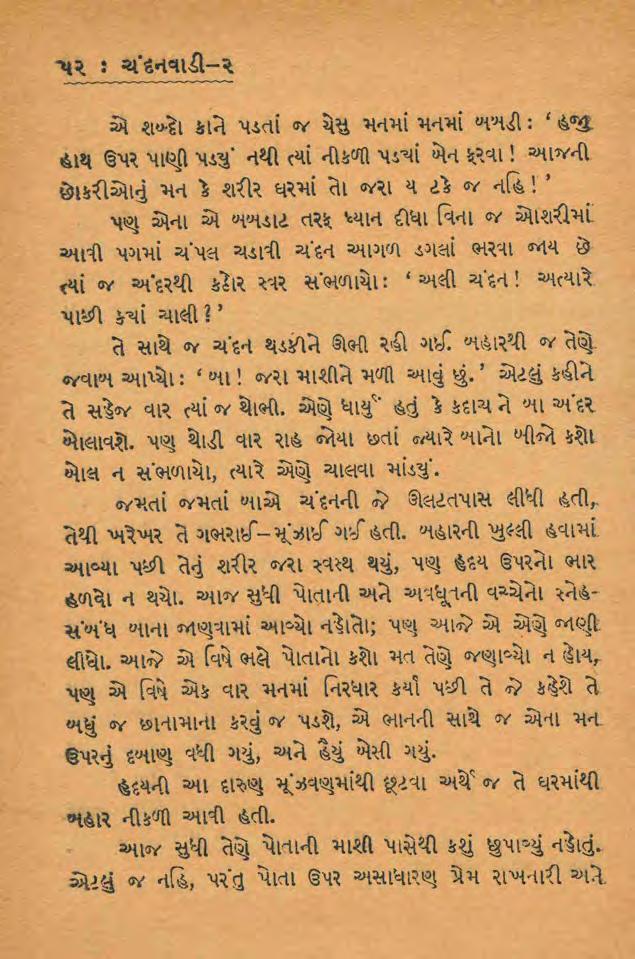 ૫૨ : ચંદનવાડી–૨
એ શબ્દો કાને પડતાં જ ચેસુ મનમાં મનમાં બબડી : ‘ હજુ
હાથ ઉપર પાણી પડ્યું નથી ત્યાં નીકળી પડ્યાં બેન ફરવા ! આજની
છોકરીઓનું મન કે શરીર ઘરમાં તો જરા ય ટકે જ નહિ ! ’
પણ એના એ બબડાટ તરફ ધ્યાન દીધા વિના જ ઓશરીમાં
આવી પગમાં ચંપલ ચડાવી ચંદન આગળ ડગલાં ભરવા જાય છે
ત્યાં જ અંદરથી કઠોર સ્વર સંભળાયો : ‘ અલી ચંદન ! અત્યારે
પાછી ક્યાં ચાલી ? ’
તે સાથે જ ચંદન થડકીને ઊભી રહી ગઈ. બહારથી જ તેણે
જવાબ આપ્યો : ‘ બા ! જરા માશીને મળી આવું છું. ’ એટલું કહીને
તે સહેજ વાર ત્યાં જ થોભી. એણે ધાર્યું હતું કે કદાચ ને બા અંદર
બોલાવશે. પણ થોડી વાર રાહ જોયા છતાં જ્યારે બાનો બીજો કશો
બોલ ન સંભળાયો, ત્યારે એણે ચાલવા માંડ્યું.
જમતાં જમતાં બાએ ચંદનની જે ઊલટતપાસ લીધી હતી,
તેથી ખરેખર તે ગભરાઈ–મૂંઝાઈ ગઈ હતી. બહારની ખુલ્લી હવામાં
આવ્યા પછી તેનું શરીર જરા સ્વસ્થ થયું, પણ હૃદય ઉપરનો ભાર
હળવો ન થયો. આજ સુધી પોતાની અને અવધૂતની વચ્ચેનો સ્નેહ-
સંબંધ બાના જાણવામાં આવ્યો નહોતો; પણ આજે એ એણે જાણી
લીધો. આજે એ વિષે ભલે પોતાનો કશો મત તેણે જણાવ્યો ન હોય,
પણ એ વિષે એક વાર મનમાં નિરધાર કર્યા પછી તે જે કહેશે તે
બધું જ છાનામાના કરવું જ પડશે, એ ભાનની સાથે જ એના મન
ઉપરનું દબાણ વધી ગયું, અને હૈયું બેસી ગયું.
હૃદયની આ દારુણ મૂંઝવણમાંથી છૂટવા અર્થે જ તે ઘરમાંથી
બહાર નીકળી આવી હતી.
આજ સુધી તેણે પોતાની માશી પાસેથી કશું છુપાવ્યું નહોતું.
એટલું જ નહિ, પરંતુ પોતા ઉપર અસાધારણ પ્રેમ રાખનારી અને